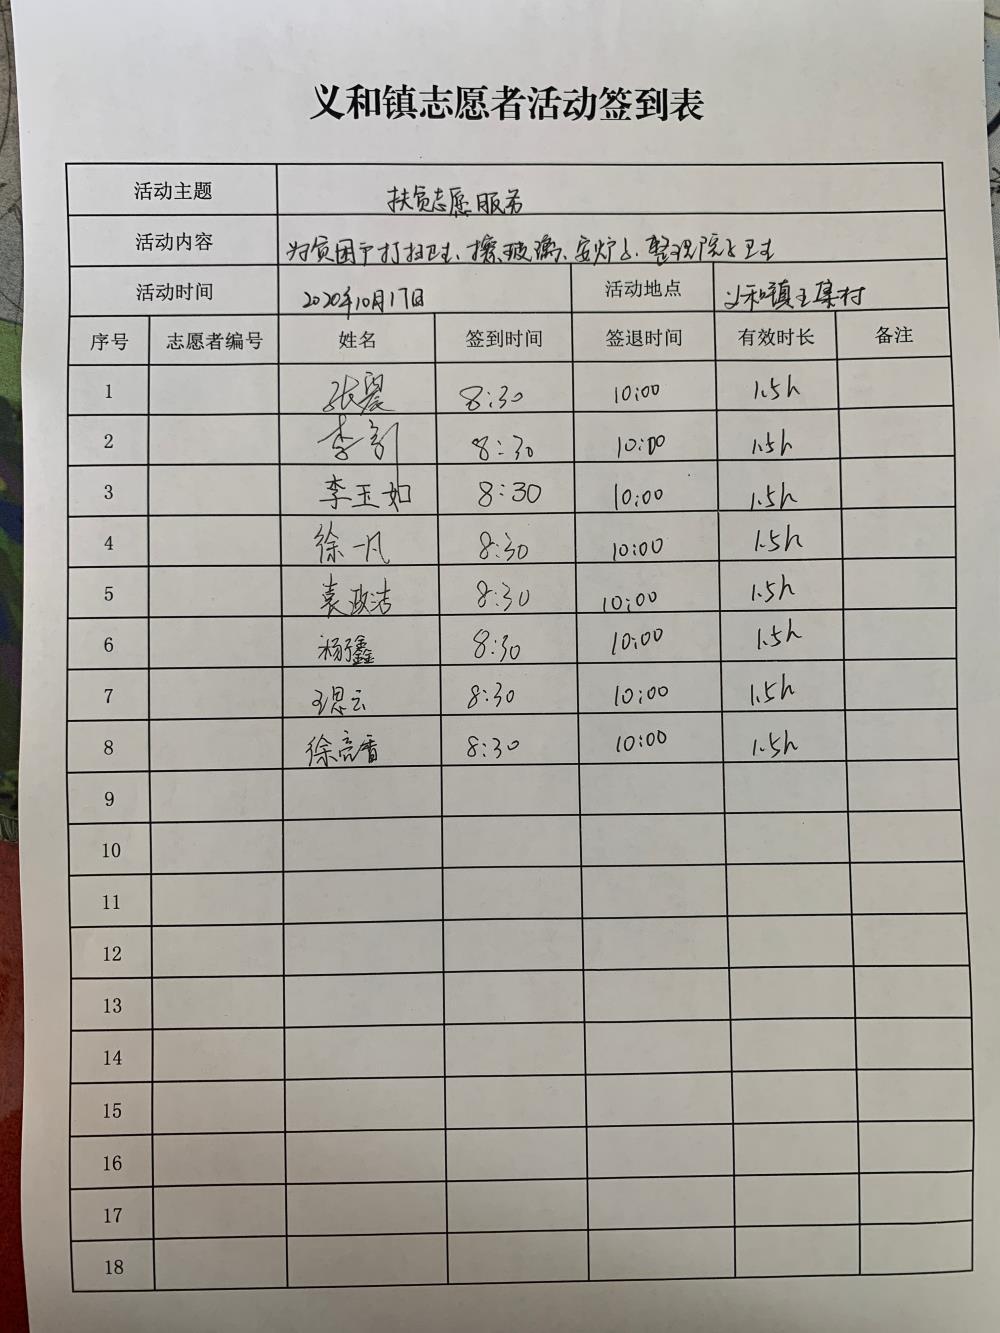 义和镇志愿者活动签到表
活动主题 扶贫志愿服务
活动内容 为贫困户打扫卫生、擦玻璃、安炉子、整理院子卫生
活动时间 2020年10月17日 活动地点 义和镇王集村
序号 志愿者编号 姓名 签到时间 签退时间 有效时长 备注
1 张 8:30 10:00 1.5h
2 李 8:30 10:00 1.5h
3 李玉如 8:30 10:00 1.5h
4 徐一凡 8:30 10:00 1.5h
5 袁政洁 8:30 10:00 1.5h
6 杨鑫 8:30 10:00 1.5h
7 王思云 8:30 10:00 1.5h
8 徐亮香 8:30 10:00 1.5h
9
10
11
12
13
14
15
16
17
18